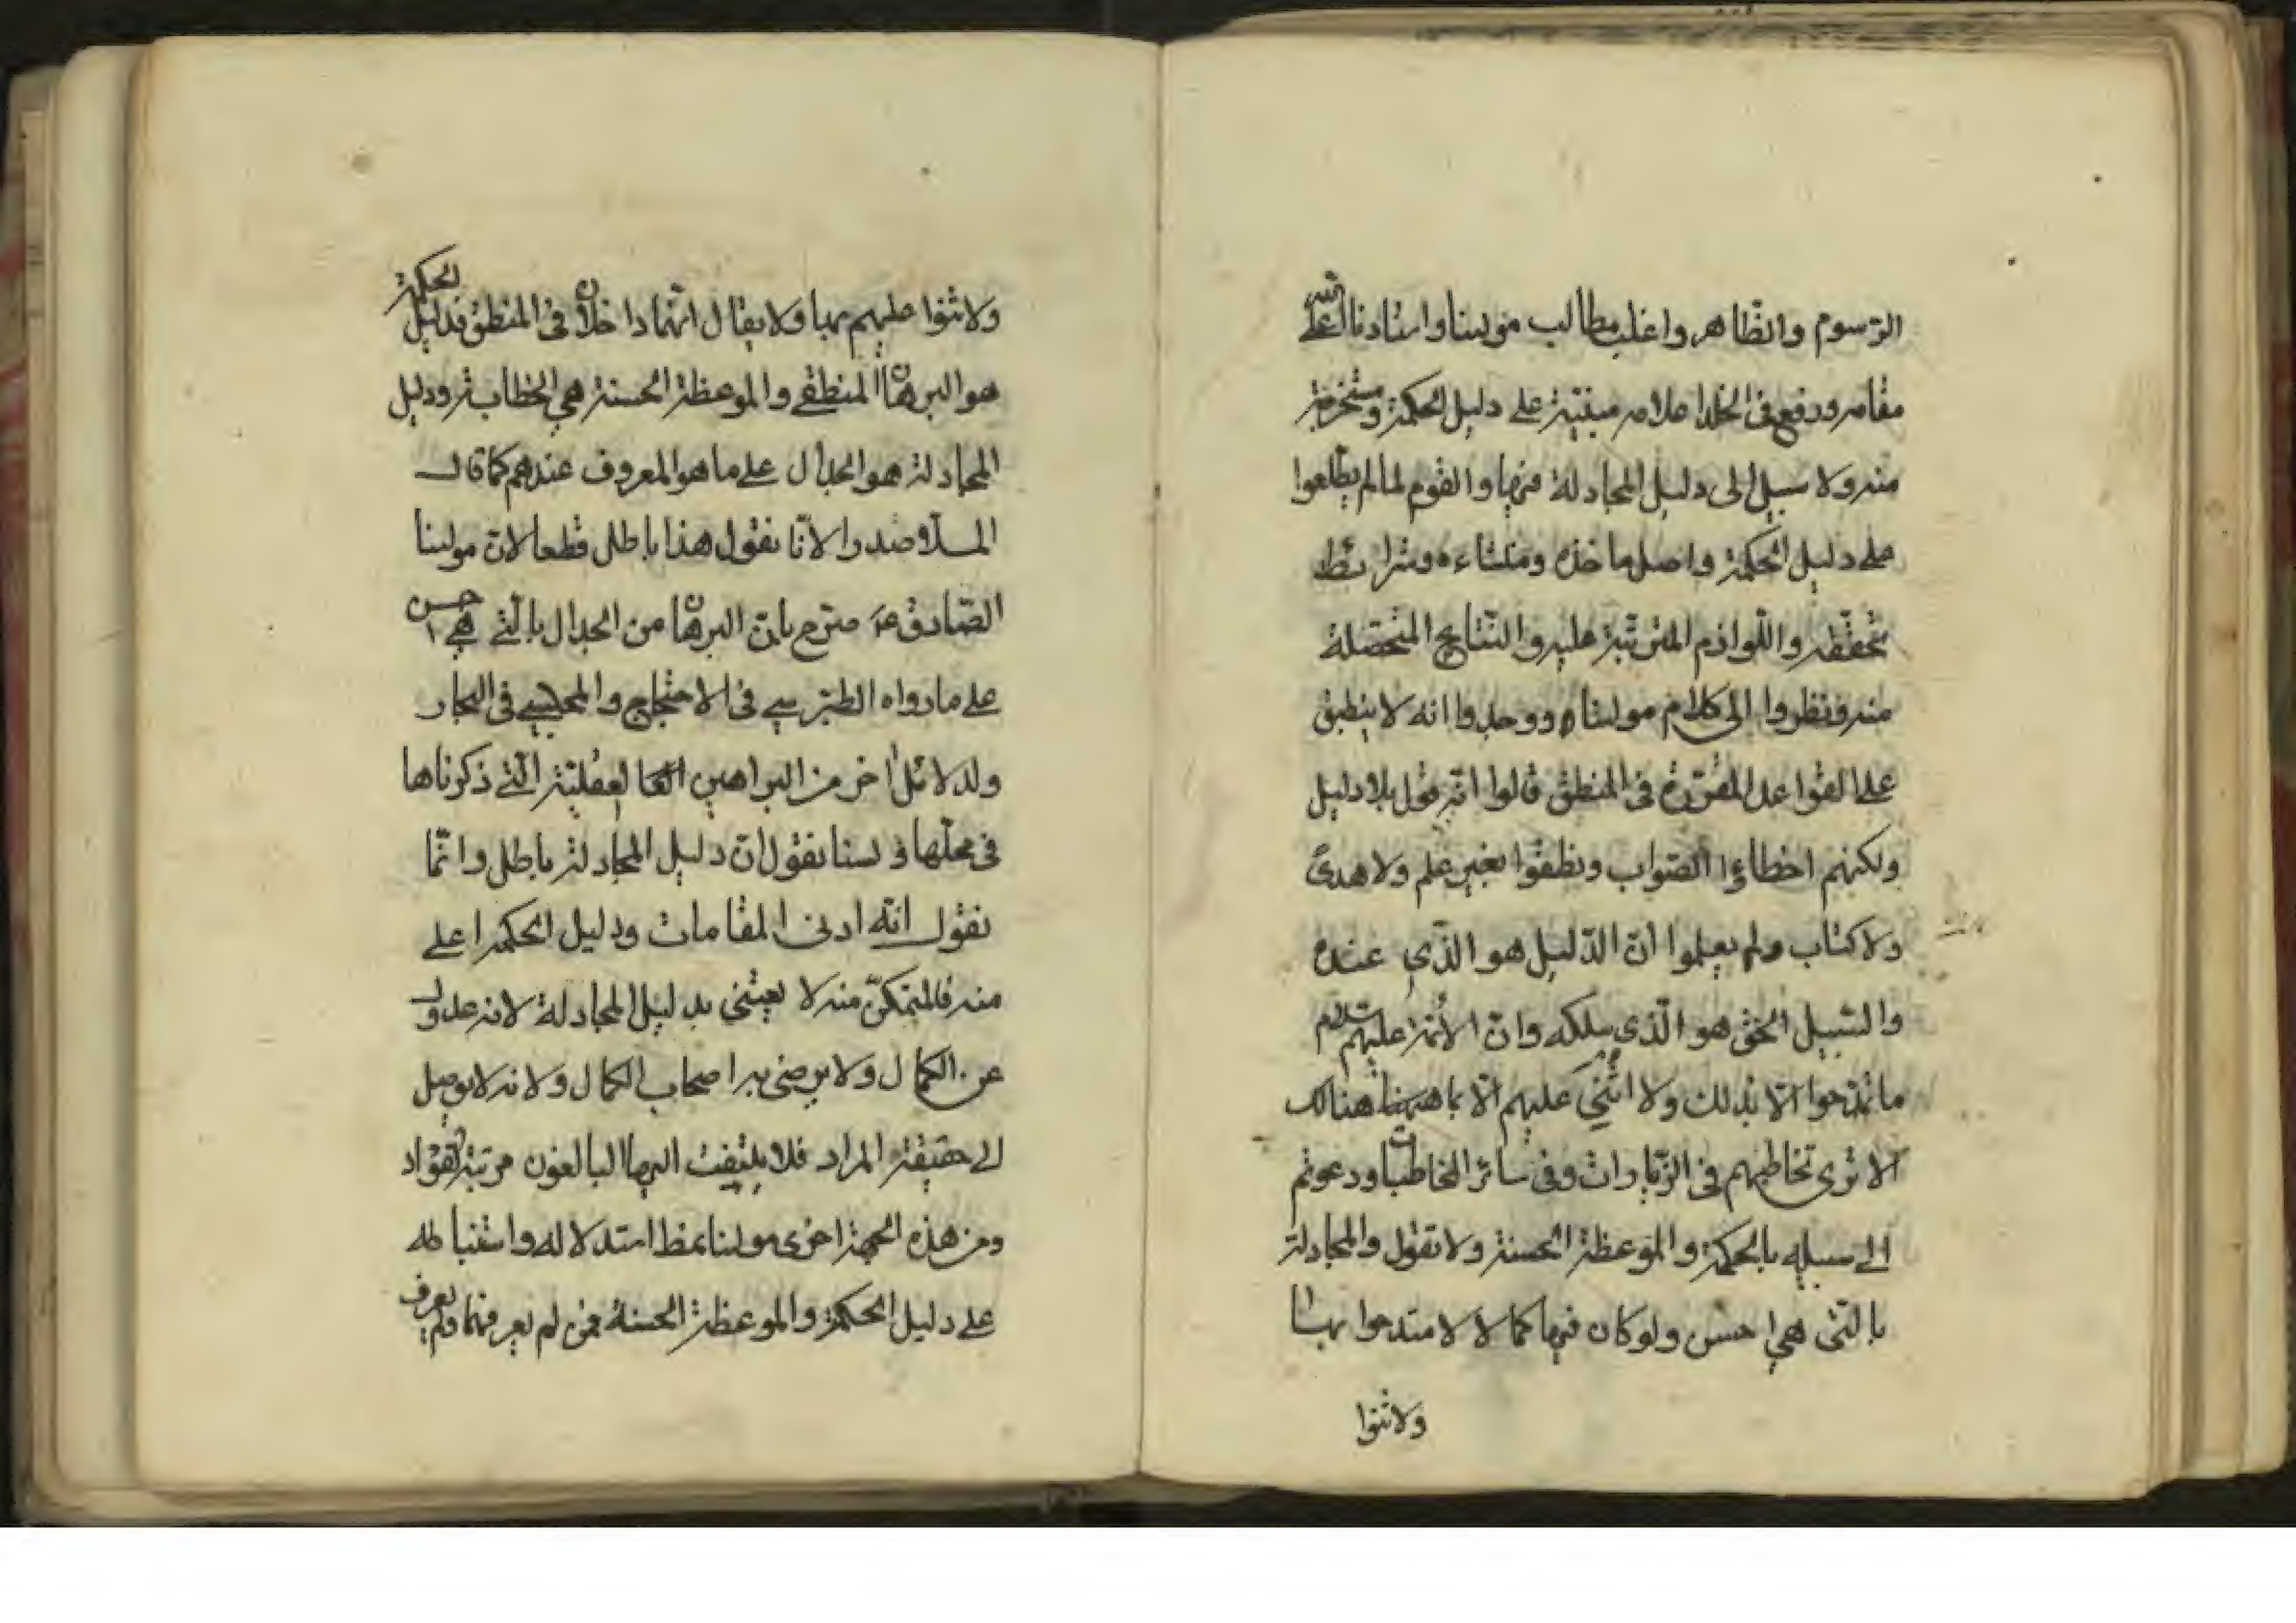 الرسوم والظاهر واغلب مطالب مولينا واستادنا اعلى الله
مقامه ورفع في الخلد اعلامه مبنية على دليل الحكمة ومستخرجة
منه ولا سبيل الى دليل المجادلة فيها والقوم لما لم يطلعوا
على دليل الحكمة واصل ماخذه ومنشاءه وشرائط
تحققه واللوازم المترتبة عليه والنتايج المتحصلة
منه فنظروا الى كلام مولينا ووجدوا انه لا ينطبق
على القواعد المقررة في المنطق قالوا انه قول بلا دليل
ولكنهم اخطاؤا الصواب ونطقوا بغير علم ولا هدى
ولا كتاب ولم يعلموا ان الدليل هو الذي عنده
والسبيل الحق هو الذي سلكه وان الائمة عليهم السلام
ما تمدحوا الا بذلك ولا اثني عليهم الا بما هنالك
الا ترى تخاطبهم في الزيارات وفي سائر المخاطبات ودعوتم
الى سبيله بالحكمة والموعظة الحسنة ولا تقول والمجادلة
بالتي هي احسن ولو كان فيها كمالا لامتدحوا بها
ولاثنوا
ولاثنوا عليهم بها ولا يقال انهما داخلان في المنطق فدليل الحكمة
هو البرهان المنطقي والموعظة الحسنة هي الخطابة ودليل
المجادلة هو الجدال على ما هو المعروف عندهم كما قال
الملا صدرا لانا نقول هذا باطل قطعا لان مولينا
الصادق ع صرح بان البرهان من الجدال بالتي هي احسن
على ما رواه الطبرسي في الاحتجاج والمجلسي في البحار
ولدلائل اخر من البراهين العقلية التي ذكرناها
في محلها ولسنا نقول ان دليل المجادلة باطل وانما
نقول انه ادنى المقامات ودليل الحكمة اعلى
منه فالمتمكن منه لا يعتني بدليل المجادلة لانه عدول
عن الكمال ولا يرضى به اصحاب الكمال ولانه لا يوصل
الى حقيقة المراد فلا يلتفت اليها البالغون مرتبة الفؤاد
ومن هذه الجهة اجرى مولينا نمط استدلاله واستنباطه
على دليل الحكمة والموعظة الحسنة فمن لم يعرفهما ولم يعرف